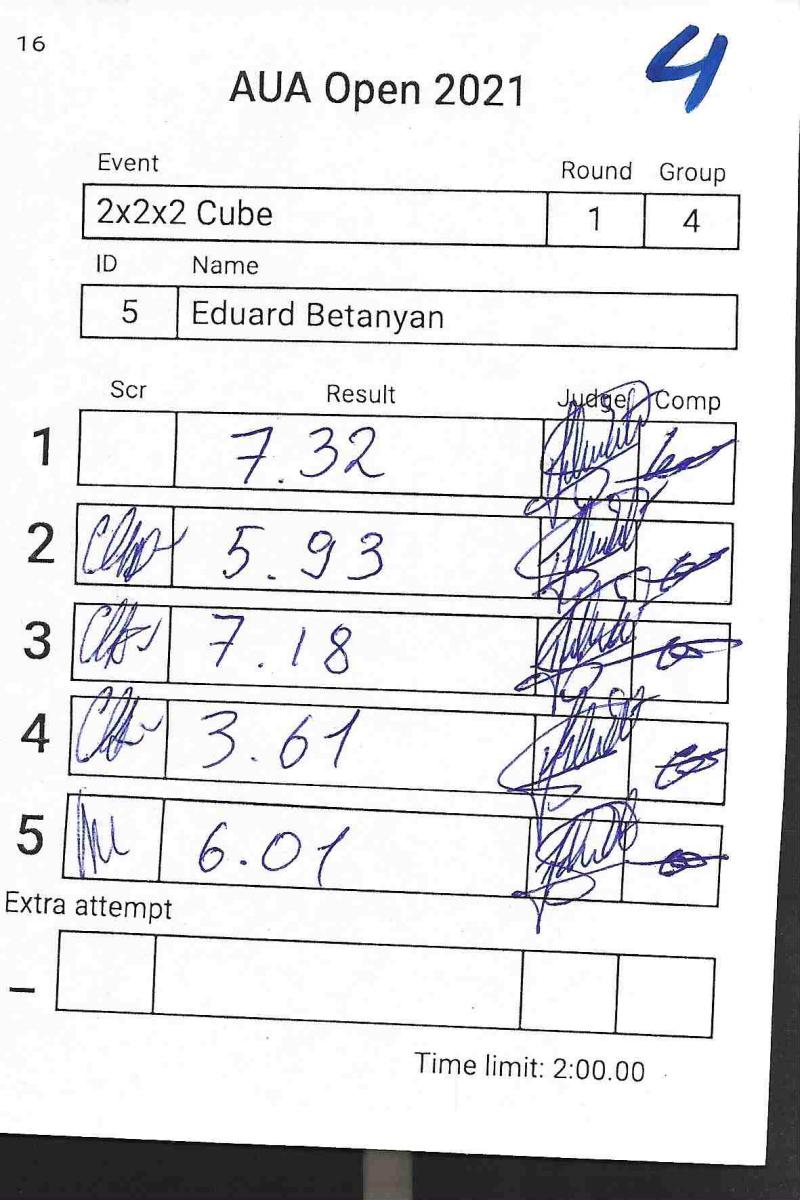 16
4
AUA Open 2021
Event Round Group
2x2x2 Cube 1 4
ID Name
5 Eduard Betanyan
Scr Result Judge Comp
1 7.32
2 5.93
3 7.18
4 3.61
5 6.01
Extra attempt
–
Time limit: 2:00.00